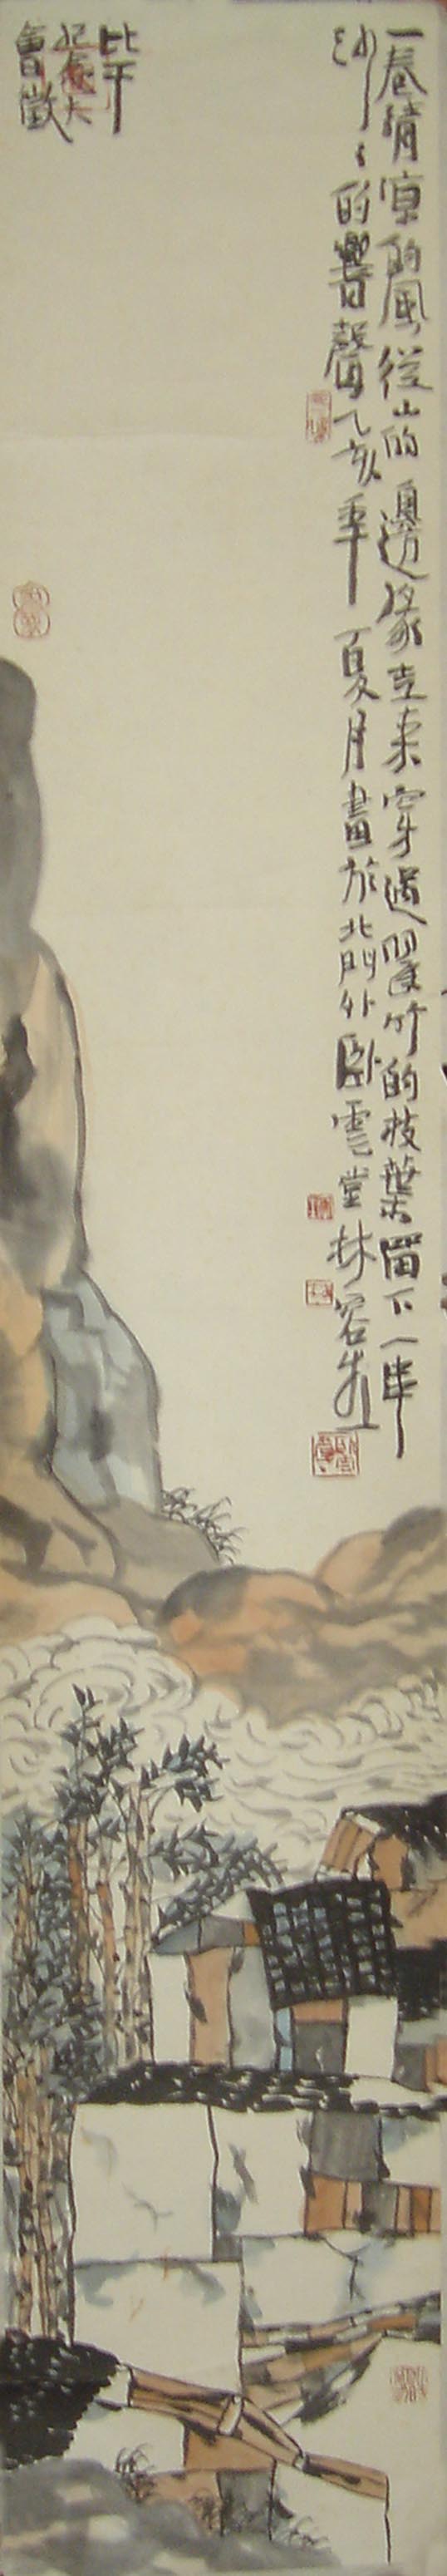 一卷清涼的風從山的邊緣走來穿過翠竹的枝葉留下一串
沙〻的響聲乙亥年夏月畫於北門外臥雲堂林容生
比干
紀念大
會徵